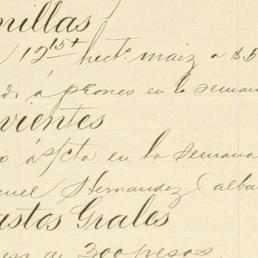 millas
12 15+ hect. maiz a $5
á peones en la semana
vientes
o á s/cta. en la semana
uel Hernandez (alba
astos Grales
de 300 pesos.